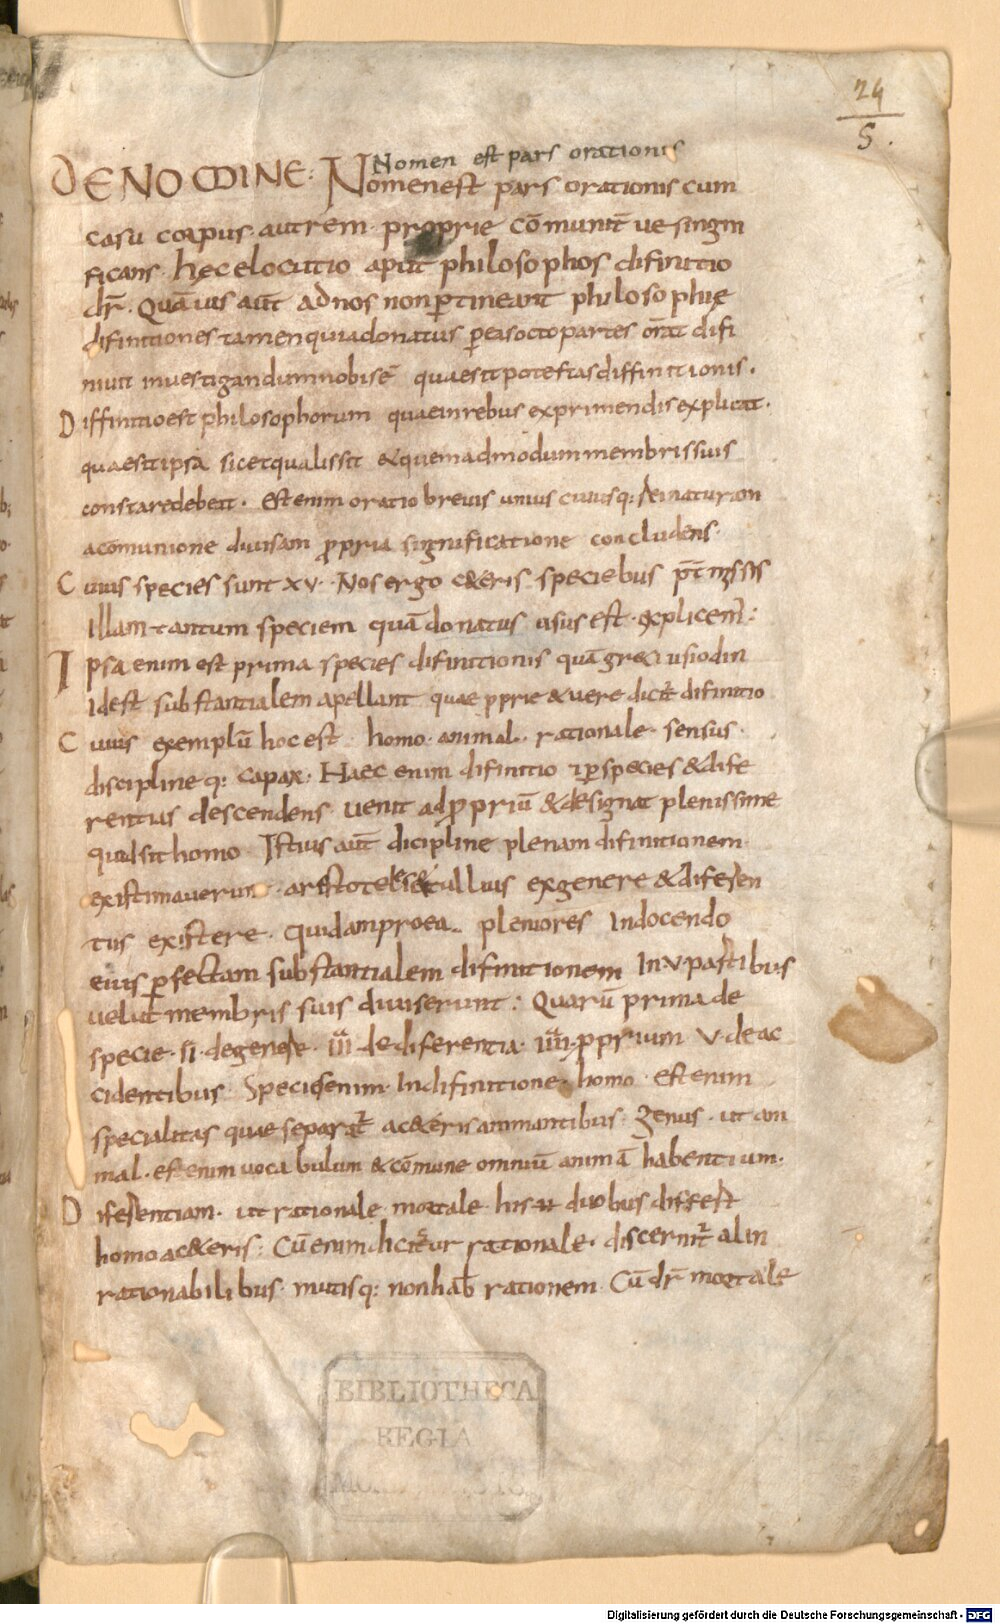 24
5.
Nomen est pars orationis
DE NOMINE: Nomen est pars orationis cum
casu corpus aut rem proprie cōmunit̄ ue singni
ficans. hęc elocutio aput philosophos difinitio
dr̄. Quāuis aut̄ ad nos non ꝑtineant philosophię
difinitiones tamen quia donatus ꝑ eas octo partes orat̄ difi
niuit inuestigandum nobis ē quae sit potestas diffinitionis.
Diffinitio est philosophorum quae in rebus exprimendis explicat.
quae sit ipsa sicet qualis sit & quemadmodum membris suis
constare debeat. Est enim oratio breuis unius cuiusq: rei naturam
a cōmunione diuisam ꝓpria singnificatione concludens.
Cuius species sunt xv. Nos ergo c&eris speciebus
Illam tantum speciem quā donatus usus est explicem:
Ipsa enim est prima species difinitionis quā greci usiodin
Id est substantialem apellant quae ꝓprie & uere dicit̄ difinitio
Cuius exemplū hoc est homo animal. rationale. sensus.
discipline q: capax: Haec enim difinitio ꝑ species & dife
rentius descendens uenit ad ꝓpriū & designat plenissime
quid sit homo Istius aut̄ dicipline plenam difinitionem.
existimauerun aristoteles & tullius ex genere & diferen
tus existere. Quidam pro ea pleniores In docendo
eius ꝑfectam substantialem difinitionem In .v. partibus
uelut membris suis diuiserunt: Quarū prima de
specie. II. de genere. III de diferentia. IIII. ꝓprium V. de ac
cidentibus Species enim. In difinitione homo est enim
specialitas quae separat̄ a c&eris animantibus. Genus. ut ani
mal. est enim uocabulum & cōmune omniū animā habentium.
Diferentiam. ut rationale mortale his duobus differt
homo a c&eris: Cū enim dicitur rationale. discernit̄ al in
rationabilibus. mutisq: non hab̄ rationem Cū dr̄ mortale
BIBLIOTHECA
REGIA
MONACENSIS.
Digitalisierung gefördert durch die Deutsche Forschungsgemeinschaft - DFG